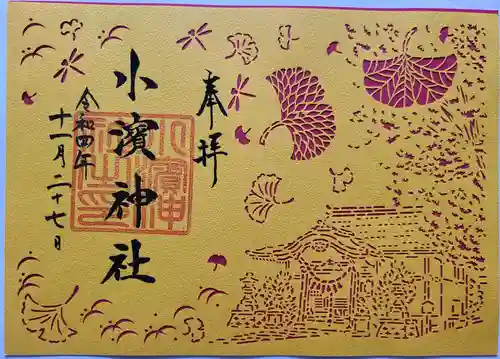 奉拝
小濱神社
令和四年
十一月二十七日